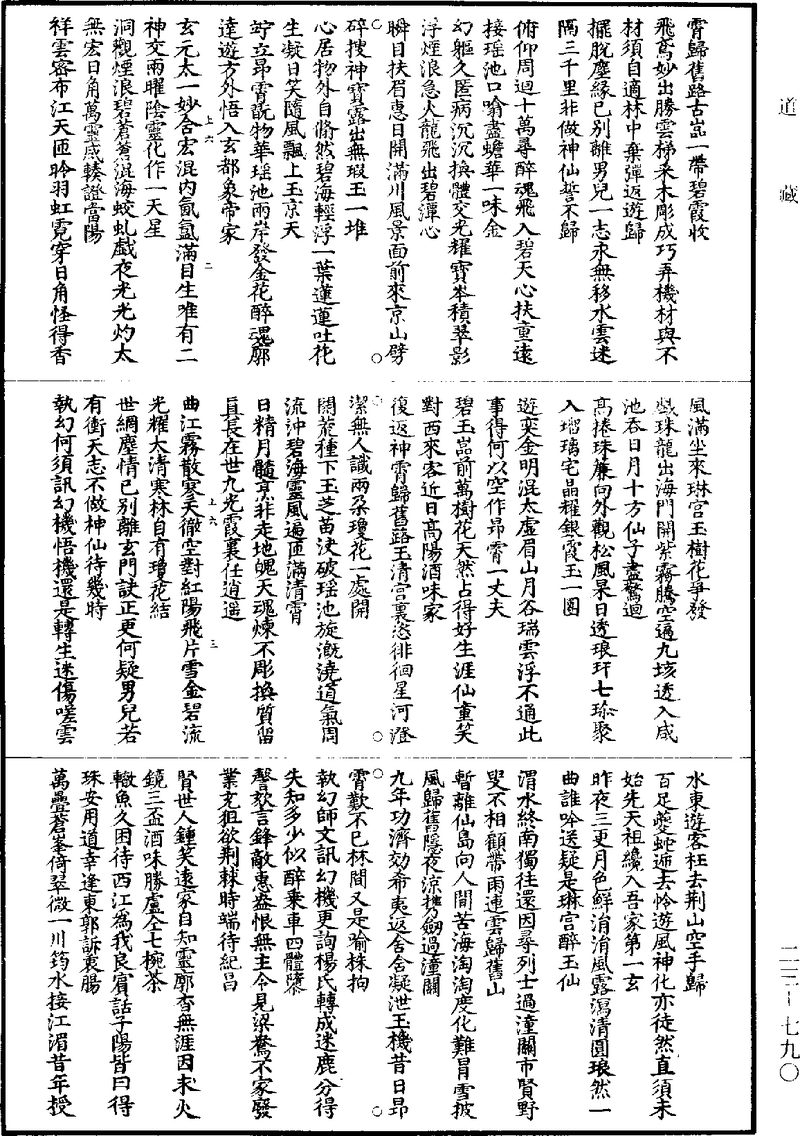 道藏
霄歸舊路古嵓一帶碧霞收
飛鳶妙出勝雲梯菜木彫成巧弄機材與不
材須自適林中棄彈返遊歸
擺脫塵緣已别離男兒一志永無移水雲迷
隔三千里非做神仙誓不歸
俯仰周迴十萬尋醉魂飛入碧天心扶重遠
接瑶池口噏盡蟾華一味金
幻軀久困病沉沉換體交光耀寶岑積翠影
浮煙浪急火龍飛出碧潭心
瞬目扶眉惠日開滿川風景面前來京山劈
碎搜神寶露出無瑕玉一堆
心居物外自翛然碧海輕浮一葉蓮蓮吐花
生凝日笑隨風飄上玉京天
竚立昂霄翫物華瑶池兩岸發金花醉魂廓
達遊方外悟入玄都象帝家
玄元太一妙含宏混内氤氲滿目生唯有二
神交雨曜陰靈化作一天星
洞觀煙浪碧蒼蒼混海蛟虬戲夜光光灼太
無宏日角萬靈咸輳證當陽
祥雲密布江天匝昤羽虹霓穿日角怪得香
風滿坐來琳宫玉樹花爭發
戲珠龍出海門開紫霧騰空遍九垓透入咸
池吞日月十方仙子盡驚迴
高捲珠簾向外觀松風杲日透琅玕七珎聚
入瑠璃宅晶耀銀霞玉一團
遊奕金明混太虚眉山月谷瑞雲浮不通此
事得何以空作昂霄一丈夫
碧玉嵓前萬樹花天然占得好生涯仙童笑
對西來客近日高陽酒味家
復返神霄歸舊路玉清宫裏恣徘徊星河澄
潔無人識兩朶瓊花一處開
闢荒種下玉芝苗決破瑶池旋漑澆道氣周
流沖碧海靈風遍匝滿清霄
日精月髓烹非走地魄天魂煉不彫換質留
真長在世九光霞裏任逍遥
曲江霧散寒天徹空對紅陽飛片雪金碧流
光耀大清寒林自有瓊花結
世網塵情已别離玄門訣正更何疑男兒若
有衝天志不做神仙待幾時
執幻何須訊幻機悟機還是轉生迷傷嗟雲
水東遊客枉去荆山空手歸
百足夔蚿逓去怜遊風神化亦徒然直須未
始先天祖纔入吾家第一玄
昨夜三更月色鮮涓涓風露瀉清圓琅然一
曲誰吟送疑是琳宫醉玉仙
渭水終南獨往還因尋列士過潼關市賢野
叟不相顧帶雨迤雲歸舊山
暫離仙島向人間苦海淘淘度化難冐雪披
風歸舊隱夜涼携劒過潼關
九年功濟効希夷返舍舍凝泄玉機昔日昂
霄歎不已林間又是喻株拘
執幻師文訊幻機更詢楊氏轉成迷鹿分得
失知多少似醉乗車四體隳
謦欬言鋒敵惠盎恨無主今見梁鴦不家發
業充狙欲荆棘時端待紀昌
賢世人鍾笑遠家自知靈廓杳無涯因求火
鏡三盃酒味勝盧仝七椀茶
轍魚久困待西江爲我良賔話子陽皆曰得
珠安用道幸逢東郭訴衷腸
萬疊蒼峯倚翠微一川筠水接江湄昔年授
二三—七九〇